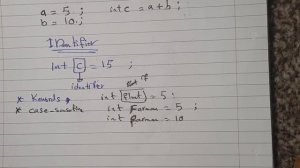 a = 5 ; int c = a + b ;
b = 10 ;
Identifier
int c = 15 ;
identifier
* Kewords, int float = 5 ;
* case-sensitive int Farman = 5 ;
int farman = 10